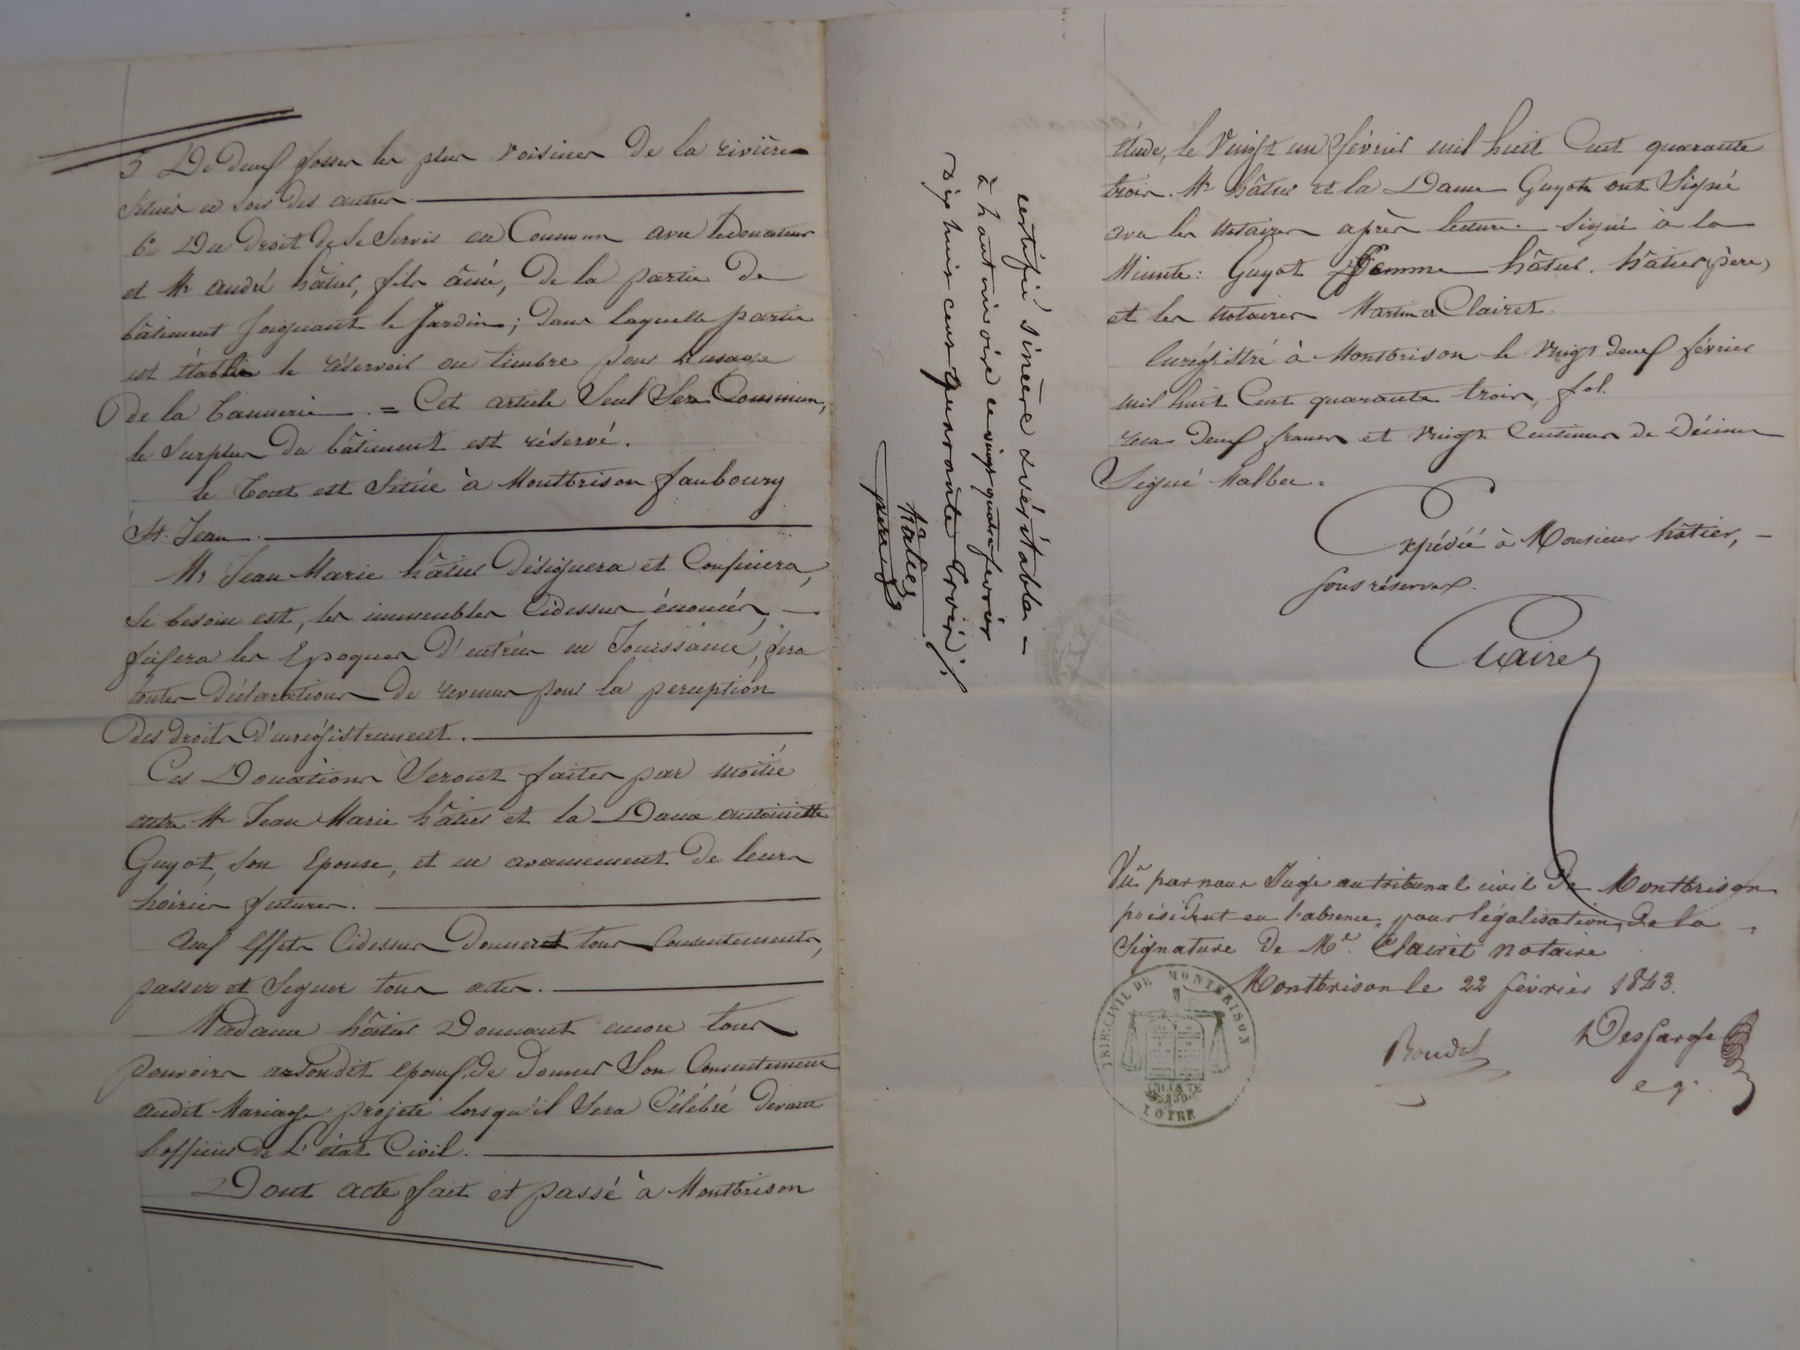 5 De deux fosses les plus voisines de la rivière
situés en sus des autres.
6° Du droit de se servir en Commun avec le donateur
et Mr andré hâtier, fils âiné, de la partie de
bâtiment joignant le Jardin; dans laquelle partie
est établie le réservoir ou timbre pour l'usage
de la Tannerie. = Cet article Seul Sera Commun,
le Surplus du bâtiment est réservé.
le Tout est Situé à Montbrison faubourg
St. Jean.
Mr Jean Marie hâtier désignera et Confinera,
Si besoin est, les immeubles Cidessus énoncés,
fixera les Epoques d'entrée en Jouissance, fera
toutes déclarations de revenus pour la perception
des droits d'enregistrement.
Ces Donations Seront faites par moitié
entre Mr Jean Marie hâtier et la Dame antoinette
Guyot, Son Epouse, et en avancement de leurs
hoiries futures.
aux effets Cidessus Donner tous Consentements,
passer et Signer tous actes.
Madame hâtier Donnant encore tous
pouvoirs a Sondit epoux, de Donner Son Consentement
audit Mariage projeté lorsqu'il Sera Célébré devant
l'officier de L'état Civil.
Dont acte fait et passé à Montbrison
certifié sincère & véritable
à L'antoinoire ce vingt quatre fevrier
Dix huit cent quarante trois ./.
hatier
père
étude, le Vingt un février mil huit Cent quarante
trois. Mr hâtier et la Dame Guyot ont Signé
avec les Notaires après lecture. Signé à la
Minute: Guyot Femme hâtier. hâtier père,
et les Notaires Martin & Clairet.
Enrégistré à Montbrison le Vingt deux février
mil huit Cent quarante trois, fol.
reçu deux francs et vingt Centimes de Décime
Signé Malbec.
Expédié à Monsieur hâtier,
sous réserves.
Clairet
Vu par nous Juge au tribunal civil de Montbrison
président en l'absence, pour légalisation de la
Signature de Me. Clairet notaire
Montbrison le 22 février 1843.
Boudot
Desfarge
e g.
TRIB. CIVIL DE MONTBRISON
LOIRE